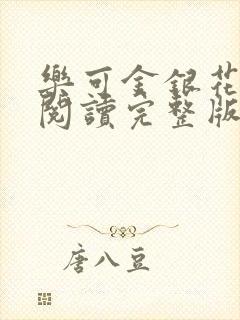 樂可金銀花
閱讀完整版
唐八豆